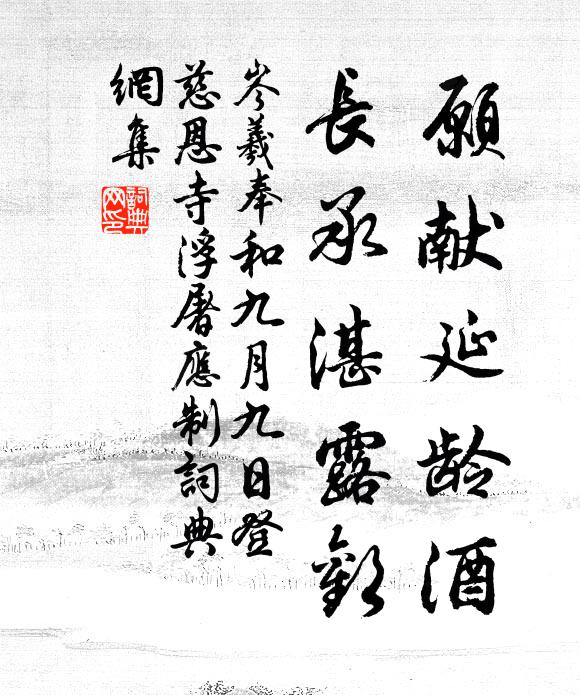 願献延龄酒
長承湛露歡
岑羲奉和九月九日登
慈恩寺浮屠應制詞典
網集
詞典网印